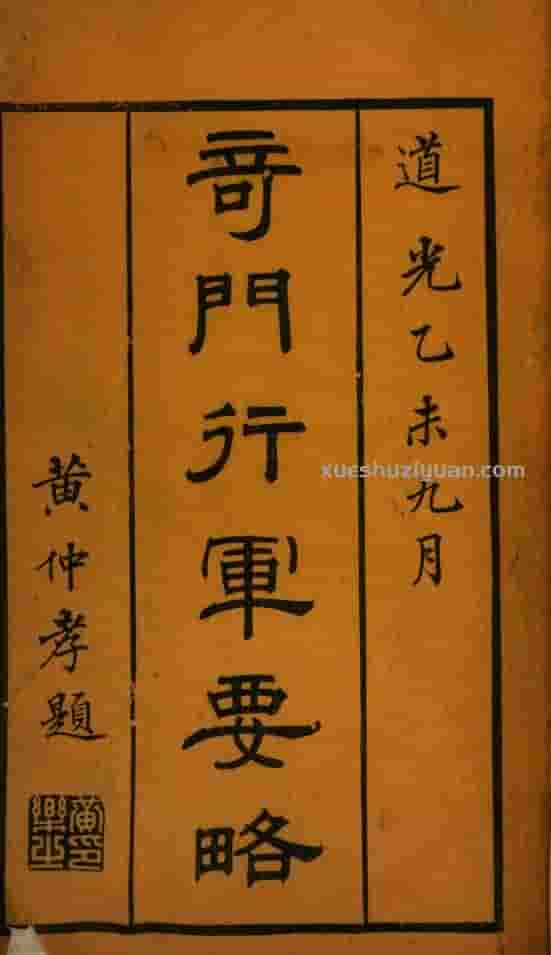 道光乙未九月
奇門行軍要略
黄仲孝題
黄印樂之
xueshuziyuan.com